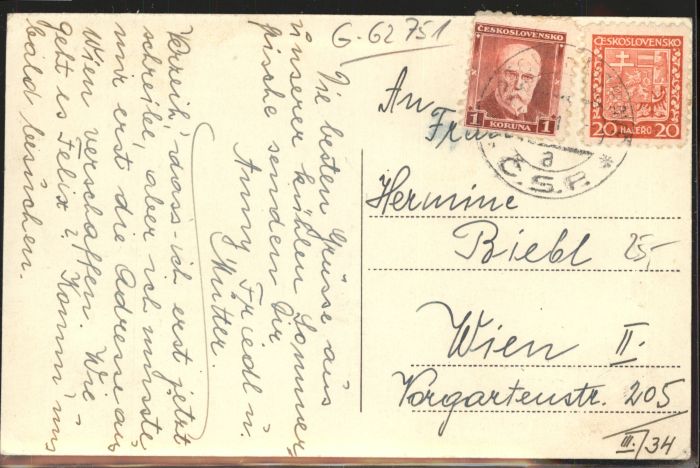 G-62751
Die besten Grüsse aus
unserer kühlen Sommer-
frische senden Dir
Anny, Friedl u.
Mutter.
Verzeih', dass ich erst jetzt
schreibe, aber ich musste
mir erst die Adresse aus
Wien verschaffen. Wie
geht es Felix? Komm' uns
bald besuchen.
ČESKOSLOVENSKO
1 KORUNA 1
ČESKOSLOVENSKO
20 HALÉŘŮ 20
a
* Č.S.P. *
An
Frau
Hermine
Biebl
25,-
Wien II.
Vorgartenstr. 205
III./34